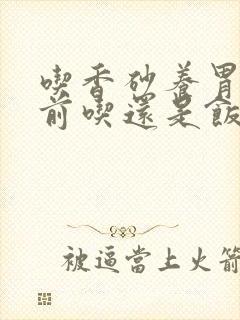 喫香砂養胃
前喫還是飯
被逼當上火箭